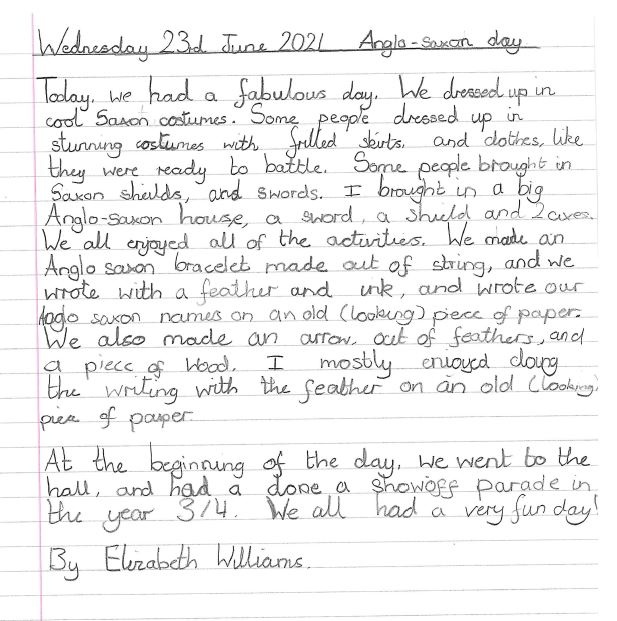 Wednesday 23rd June 2021 Anglo-Saxon day
Today, we had a fabulous day. We dressed up in
cool Saxon costumes. Some people dressed up in
stunning costumes with frilled skirts, and clothes, like
they were ready to battle. Some people brought in
Saxon shields, and swords. I brought in a big
Anglo-saxon house, a sword, a shield and 2 axes.
We all enjoyed all of the activities. We made an
Anglo saxon bracelet made out of string, and we
wrote with a feather and ink, and wrote our
Anglo saxon names on an old (looking) piece of paper.
We also made an arrow, out of feathers, and
a piece of wood. I mostly enjoyed doing
the writing with the feather on an old (looking)
piece of paper.
At the beginning of the day, we went to the
hall, and had a done a showoff parade in
the year 3/4. We all had a very fun day!
By Elizabeth Williams.